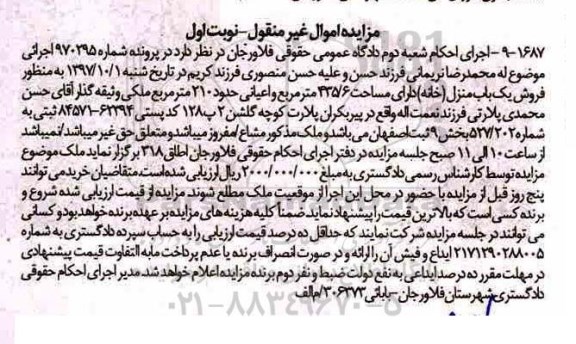 مزایده اموال غیر منقول-نوبت اول
۱۶۸۷-۹- اجرای احکام شعبه دوم دادگاه عمومی حقوقی فلاورجان در نظر دارد در پرونده شماره ۹۷۰۲۹۵ اجرائی
موضوع له محمدرضا نریمانی فرزند حسن و علیه حسن منصوری فرزند کریم در تاریخ شنبه ۱۳۹۷/۱۰/۱ به منظور
فروش یک باب منزل (خانه) دارای مساحت ۴۳۵/۶ متر مربع و اعیانی حدود ۲۱۰ متر مربع ملکی وثیقه گذار آقای حسن
محمدی پلارتی فرزند نعمت اله واقع در پیربکران پلارت کوچه گلشن ۲ پ ۱۲۸ کد پستی ۶۲۳۹۴-۸۴۵۷۱ ثبتی به
شماره ۵۲۷/۲۰۲ بخش ۹ ثبت اصفهان می باشد و ملک مذکور مشاع/مفروز میباشد و متعلق حق غیر میباشد/نمیباشد
از ساعت ۱۰ الی ۱۱ صبح جلسه مزایده در دفتر اجرای احکام حقوقی فلاورجان اطاق ۳۱۸ برگزار نماید ملک موضوع
مزایده توسط کارشناس رسمی دادگستری به مبلغ ۲/۰۰۰/۰۰۰/۰۰۰ ریال ارزیابی شده است. متقاضیان خرید می توانند
پنج روز قبل از مزایده با حضور در محل این اجرا از موقعیت ملک مطلع شوند. مزایده از قیمت ارزیابی شده شروع و
برنده کسی است که بالاترین قیمت را پیشنهاد نماید ضمناً کلیه هزینه های مزایده بر عهده برنده خواهد بود و کسانی
می توانند در جلسه مزایده شرکت نمایند که حداقل ده درصد قیمت ارزیابی را به حساب سپرده دادگستری به شماره
۲۱۷۱۲۹۰۲۸۸۰۰۵ ایداع و فیش آن را ارائه و در صورت انصراف برنده یا عدم پرداخت مابه التفاوت قیمت پیشنهادی
در مهلت مقرر ده درصد ایداعی به نفع دولت ضبط و نفر دوم برنده مزایده اعلام خواهد شد. مدیر اجرای احکام حقوقی
دادگستری شهرستان فلاورجان-بابائی ۳۰۶۳۷۳/م الف
۰۲۱-۸۸۳۴۹۶۷۰-۵